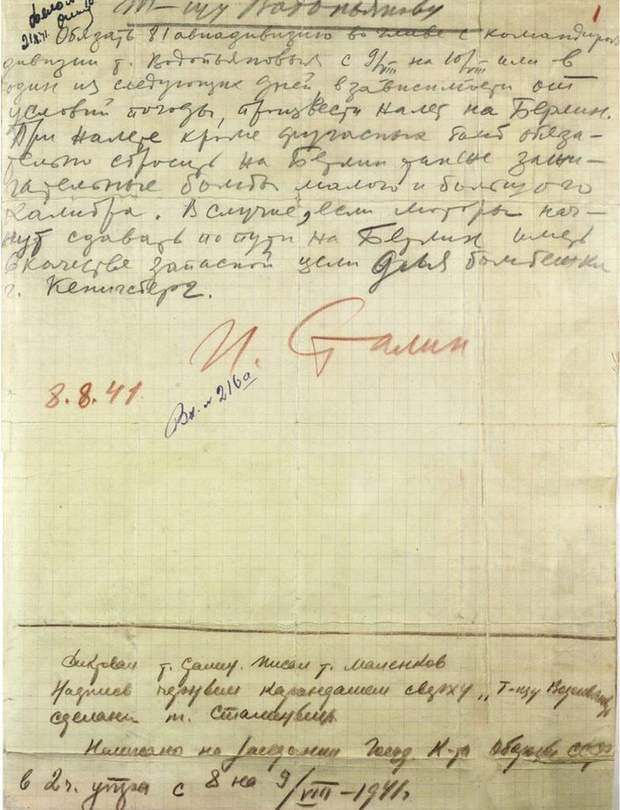 1
21/IX 41.
Т-щу Водопьянову
Обязать 81 авиадивизию во главе с командиром
дивизии т. Водопьяновым с 9/VIII на 10/VIII или в
один из следующих дней, в зависимости от
условий погоды, произвести налет на Берлин.
При налете кроме фугасных бомб обяза-
тельно сбросить на Берлин также зажи-
гательные бомбы малого и большого
калибра. В случае, если моторы нач-
нут сдавать по пути на Берлин иметь
в качестве запасной цели для бомбежки
г. Кенигсберг.
И. Сталин
8.8.41
Вх. № 216а
Диктовал т. Сталин. Писал т. Маленков
Надпись первым карандашем сверху „Т-щу Водопьянову
сделана т. Сталиным.
Написано на заседании Госуд. К-та Обороны СССР
в 2 ч. утра с 8 на 9/VIII-1941г